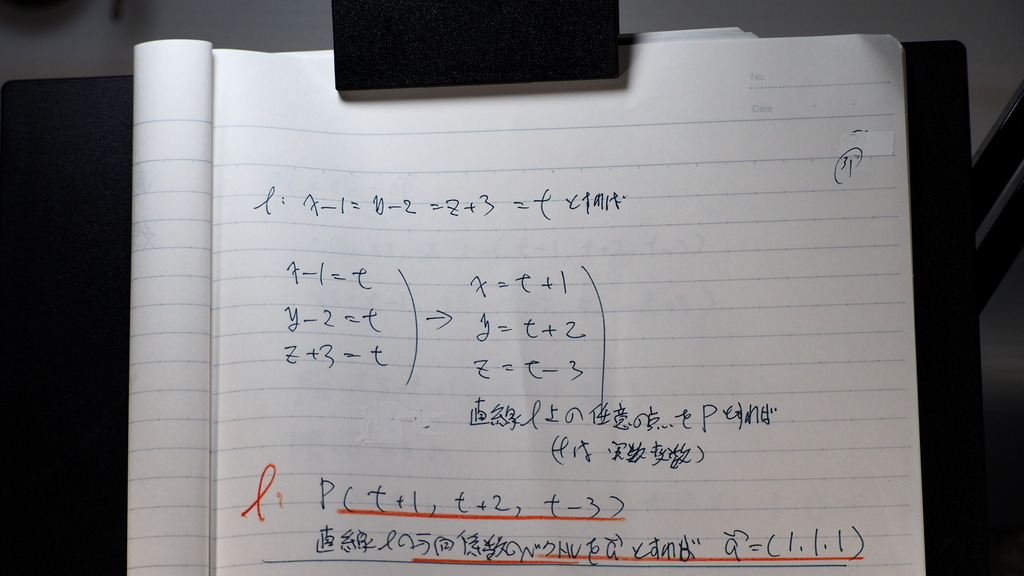 No.
Date
l: x-1=y-2=z+3=t とすれば
x-1=t
y-2=t
z+3=t
→
x=t+1
y=t+2
z=t-3
直線l上の任意の点をPとすれば
(tは実数変数)
l: P(t+1, t+2, t-3)
直線lの方向係数のベクトルをa→とすれば a→=(1,1,1)